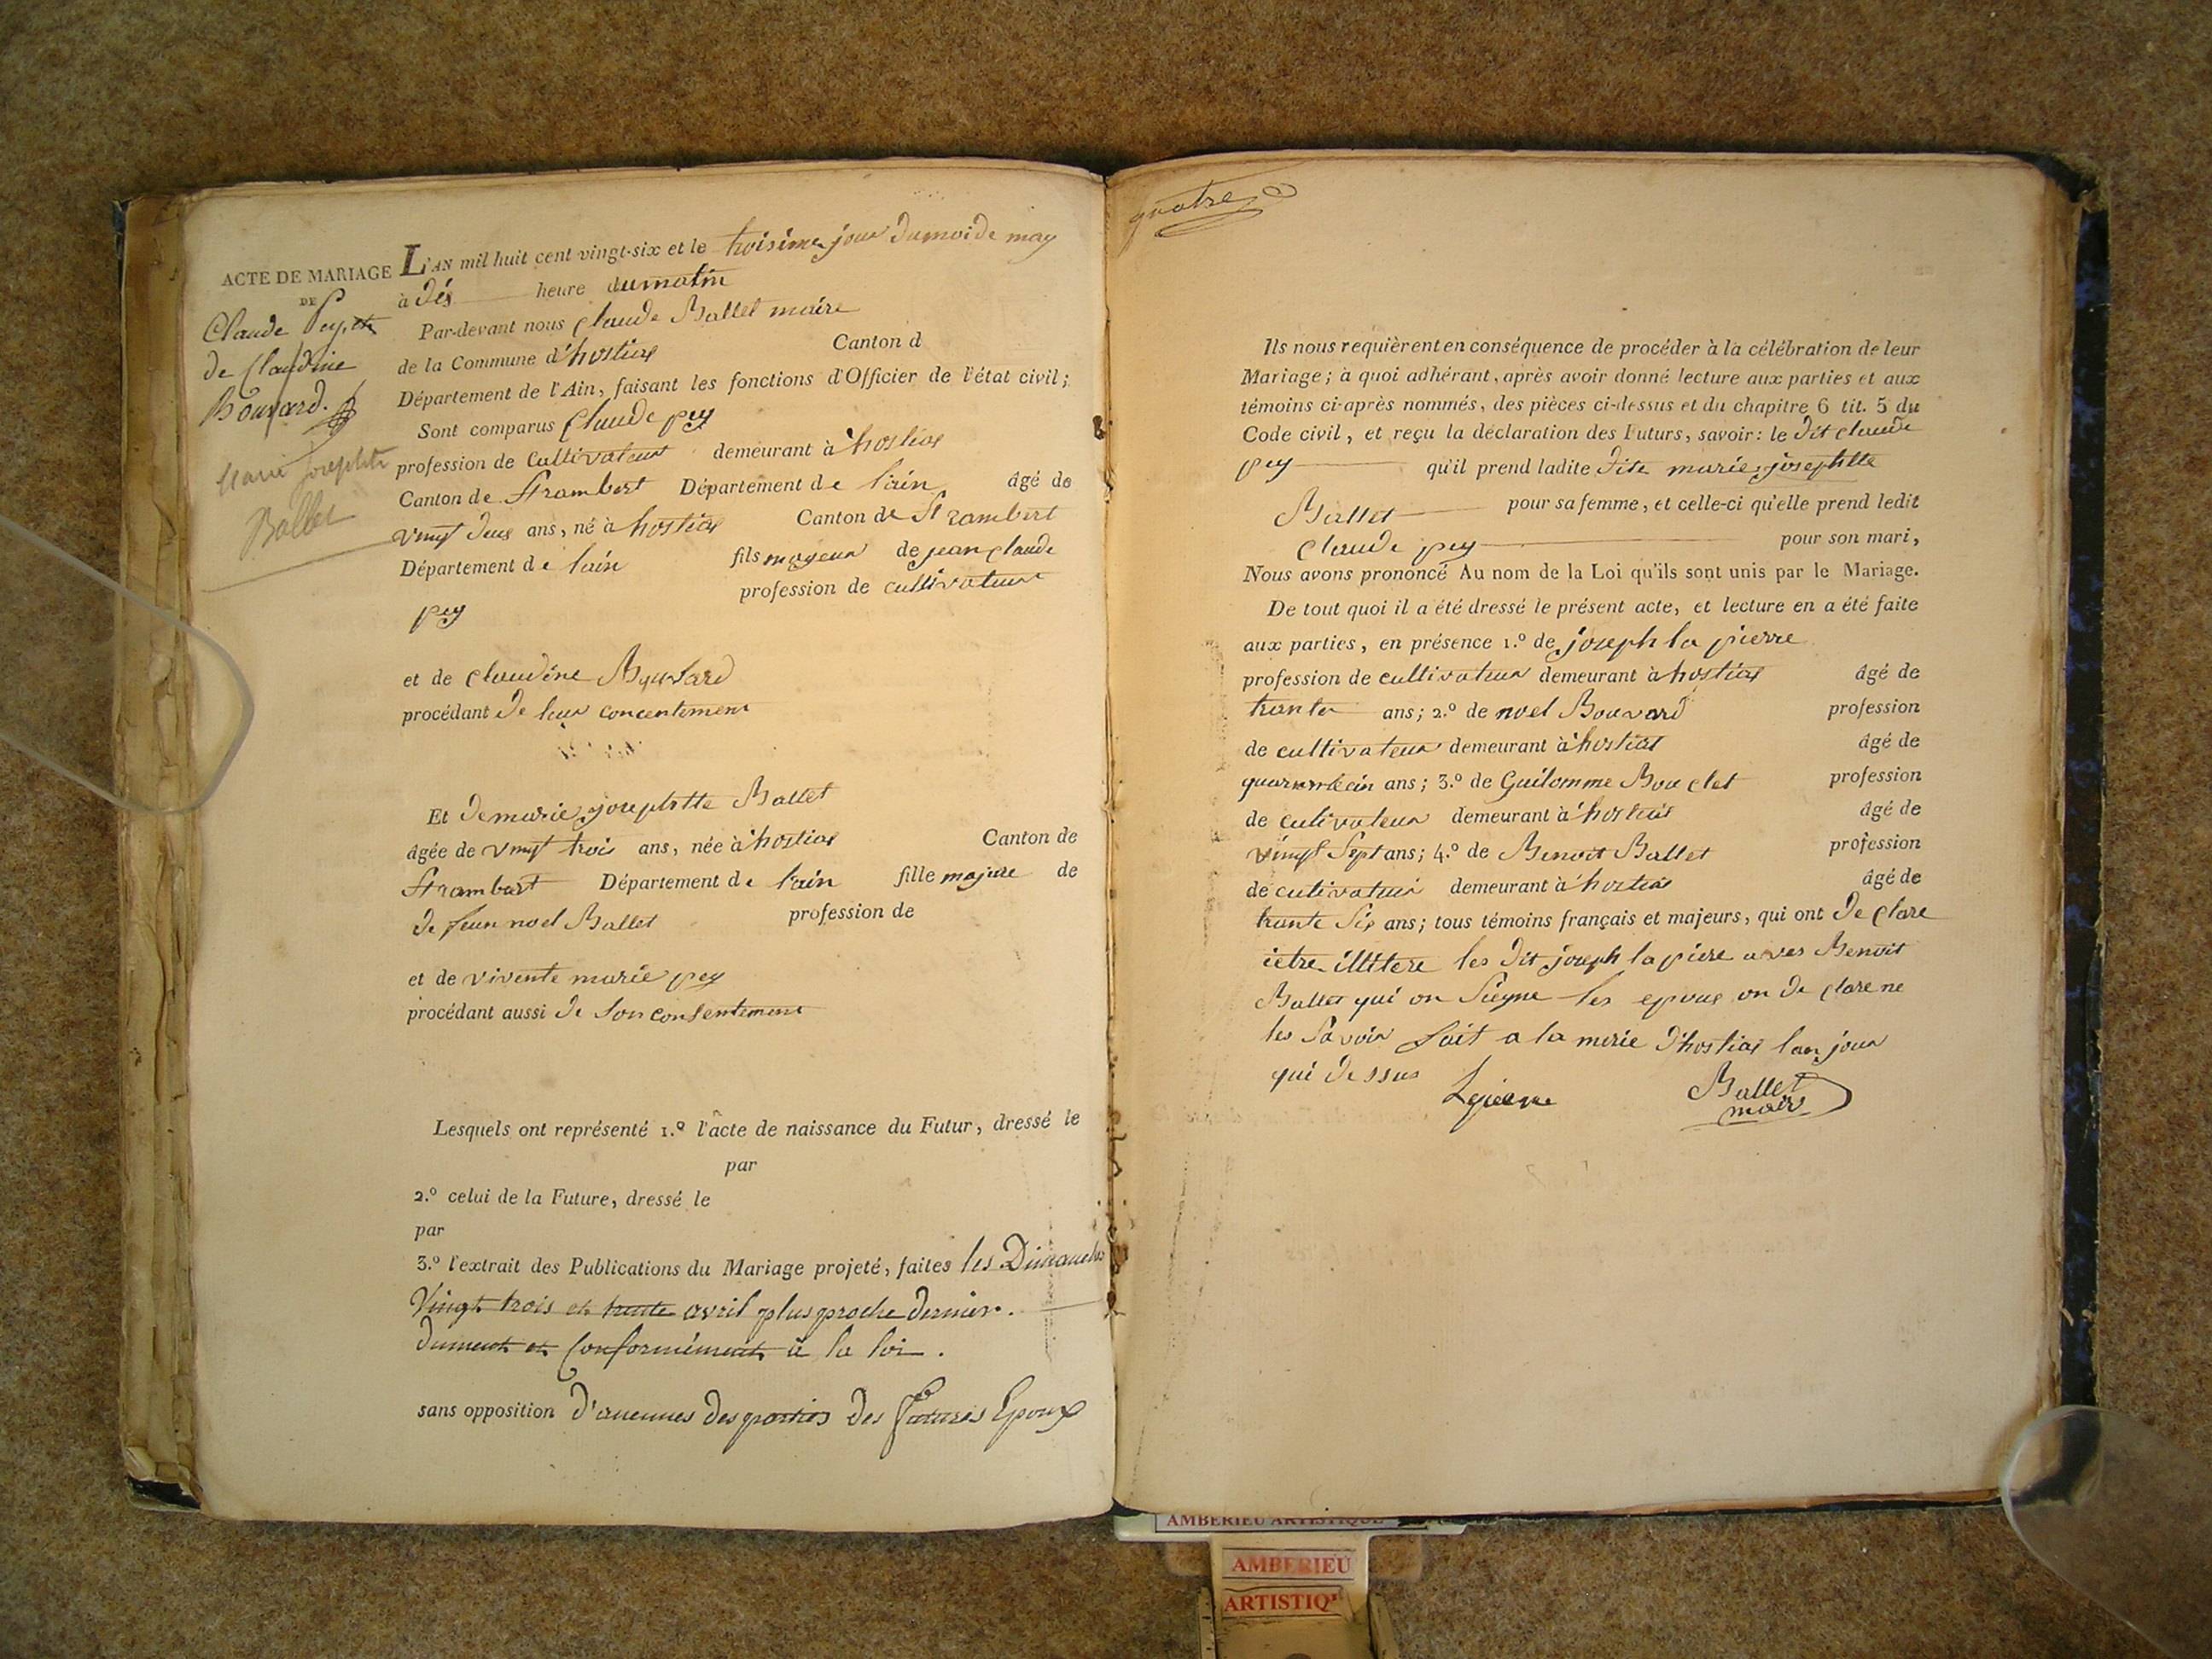 ACTE DE MARIAGE
DE
Claude Pey, et
de Claudine
Bouvard.
Marie Josephte
Ballet
L'AN mil huit cent vingt-six et le troisime jour du moi de may
à dés heure du matin
Par-devant nous Claude Ballet maire
de la Commune d'hostias Canton d
Département de l'Ain, faisant les fonctions d'Officier de l'état civil;
Sont comparus Claude pey
profession de Cultivateur demeurant à hostias
Canton de St rambert Département de lain âgé de
vingt deus ans, né à hostias Canton de St rambert
Département de lain fils mageur de jean Claude
pey profession de cultivateur
et de Claudine Bouvard
procédant de leur concentement
Et de marie josephtte Ballet
âgée de vingt trois ans, née à hostias Canton de
St rambert Département de lain fille majure de
de feun noel Ballet profession de
et de vivente marie pey
procédant aussi de son consentement
Lesquels ont représenté 1.º l'acte de naissance du Futur, dressé le
par
2.º celui de la Future, dressé le
par
3.º l'extrait des Publications du Mariage projeté, faites les Dimanches
Vingt trois et trente avril plus proche dernier.
dument et Conformément à la loi.
sans opposition d'aucunes des parties des futures Epoux
quatre
Ils nous requièrent en conséquence de procéder à la célébration de leur
Mariage; à quoi adhérant, après avoir donné lecture aux parties et aux
témoins ci-après nommés, des pièces ci-dessus et du chapitre 6 tit. 5 du
Code civil, et reçu la déclaration des Futurs, savoir: le dit claude
pey qu'il prend ladite dite marie josephtte
Ballet pour sa femme, et celle-ci qu'elle prend ledit
Claude pey pour son mari,
Nous avons prononcé Au nom de la Loi qu'ils sont unis par le Mariage.
De tout quoi il a été dressé le présent acte, et lecture en a été faite
aux parties, en présence 1.º de joseph la pierre
profession de cultivateur demeurant à hostias âgé de
trante ans; 2.º de noel Bouvard profession
de cultivateur demeurant à hostias âgé de
ans; 3.º de Guilomme Bouclet profession
de cultivateur demeurant à hostias âgé de
vingt Sept ans; 4.º de Benoit Ballet profession
de cutivateur demeurant à hostias âgé de
trante Six ans; tous témoins français et majeurs, qui ont de clare
ietre illitere les dit joseph la piere aves Benoit
Ballet qui on Siegne les epous on de clare ne
les Savoir fait a la merie d'hostias lan jour
qui dessus
Lapierre Ballet
maire
AMBERIEU ARTISTIQUE
AMBERIEU
ARTISTIQ